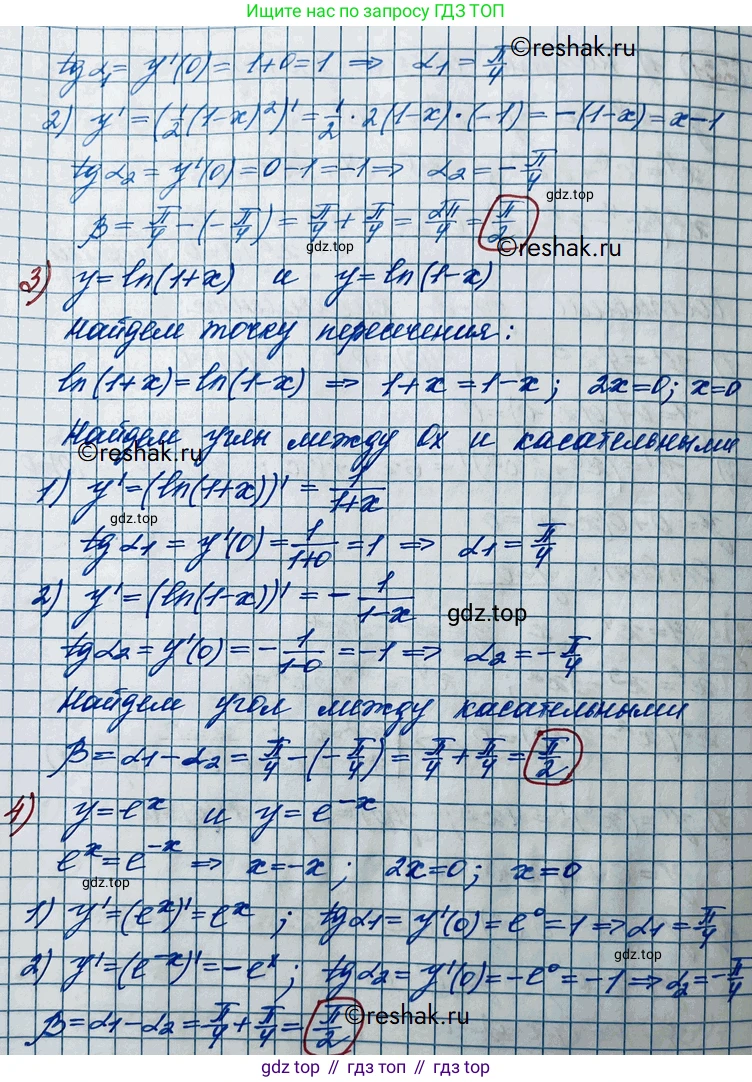 Ищите нас по запросу ГДЗ ТОП
©reshak.ru
tg α₁ = y'(0) = 1+0 = 1 ⇒ α₁ = π/4
2) y' = (1/2(1-x)²)' = 1/2 · 2(1-x)·(-1) = -(1-x) = x-1
tg α₂ = y'(0) = 0-1 = -1 ⇒ α₂ = -π/4
gdz.top
β = π/4 - (-π/4) = π/4 + π/4 = 2π/4 = π/2
gdz.top
©reshak.ru
3) y = ln(1+x) и y = ln(1-x)
Найдем точку пересечения:
ln(1+x) = ln(1-x) ⇒ 1+x = 1-x; 2x=0; x=0
Найдем углы между Ox и касательными
©reshak.ru
1) y' = (ln(1+x))' = 1/(1+x)
gdz.top
tg α1 = y'(0) = 1/(1+0) = 1 ⇒ α1 = π/4
2) y' = (ln(1-x))' = - 1/(1-x)
gdz.top
tg α2 = y'(0) = - 1/(1-0) = -1 ⇒ α2 = -π/4
Найдем угол между касательными
β = α1 - α2 = π/4 - (-π/4) = π/4 + π/4 = π/2
4) y = eˣ и y = e⁻ˣ
eˣ = e⁻ˣ ⇒ x = -x; 2x=0; x=0
gdz.top
1) y' = (eˣ)' = eˣ; tg α1 = y'(0) = e⁰ = 1 ⇒ α1 = π/4
gdz.top
2) y' = (e⁻ˣ)' = -eˣ; tg α2 = y'(0) = -e⁰ = -1 ⇒ α2 = -π/4
β = α1 - α2 = π/4 + π/4 = π/2
©reshak.ru
gdz.top // гдз.top // гдз.топ